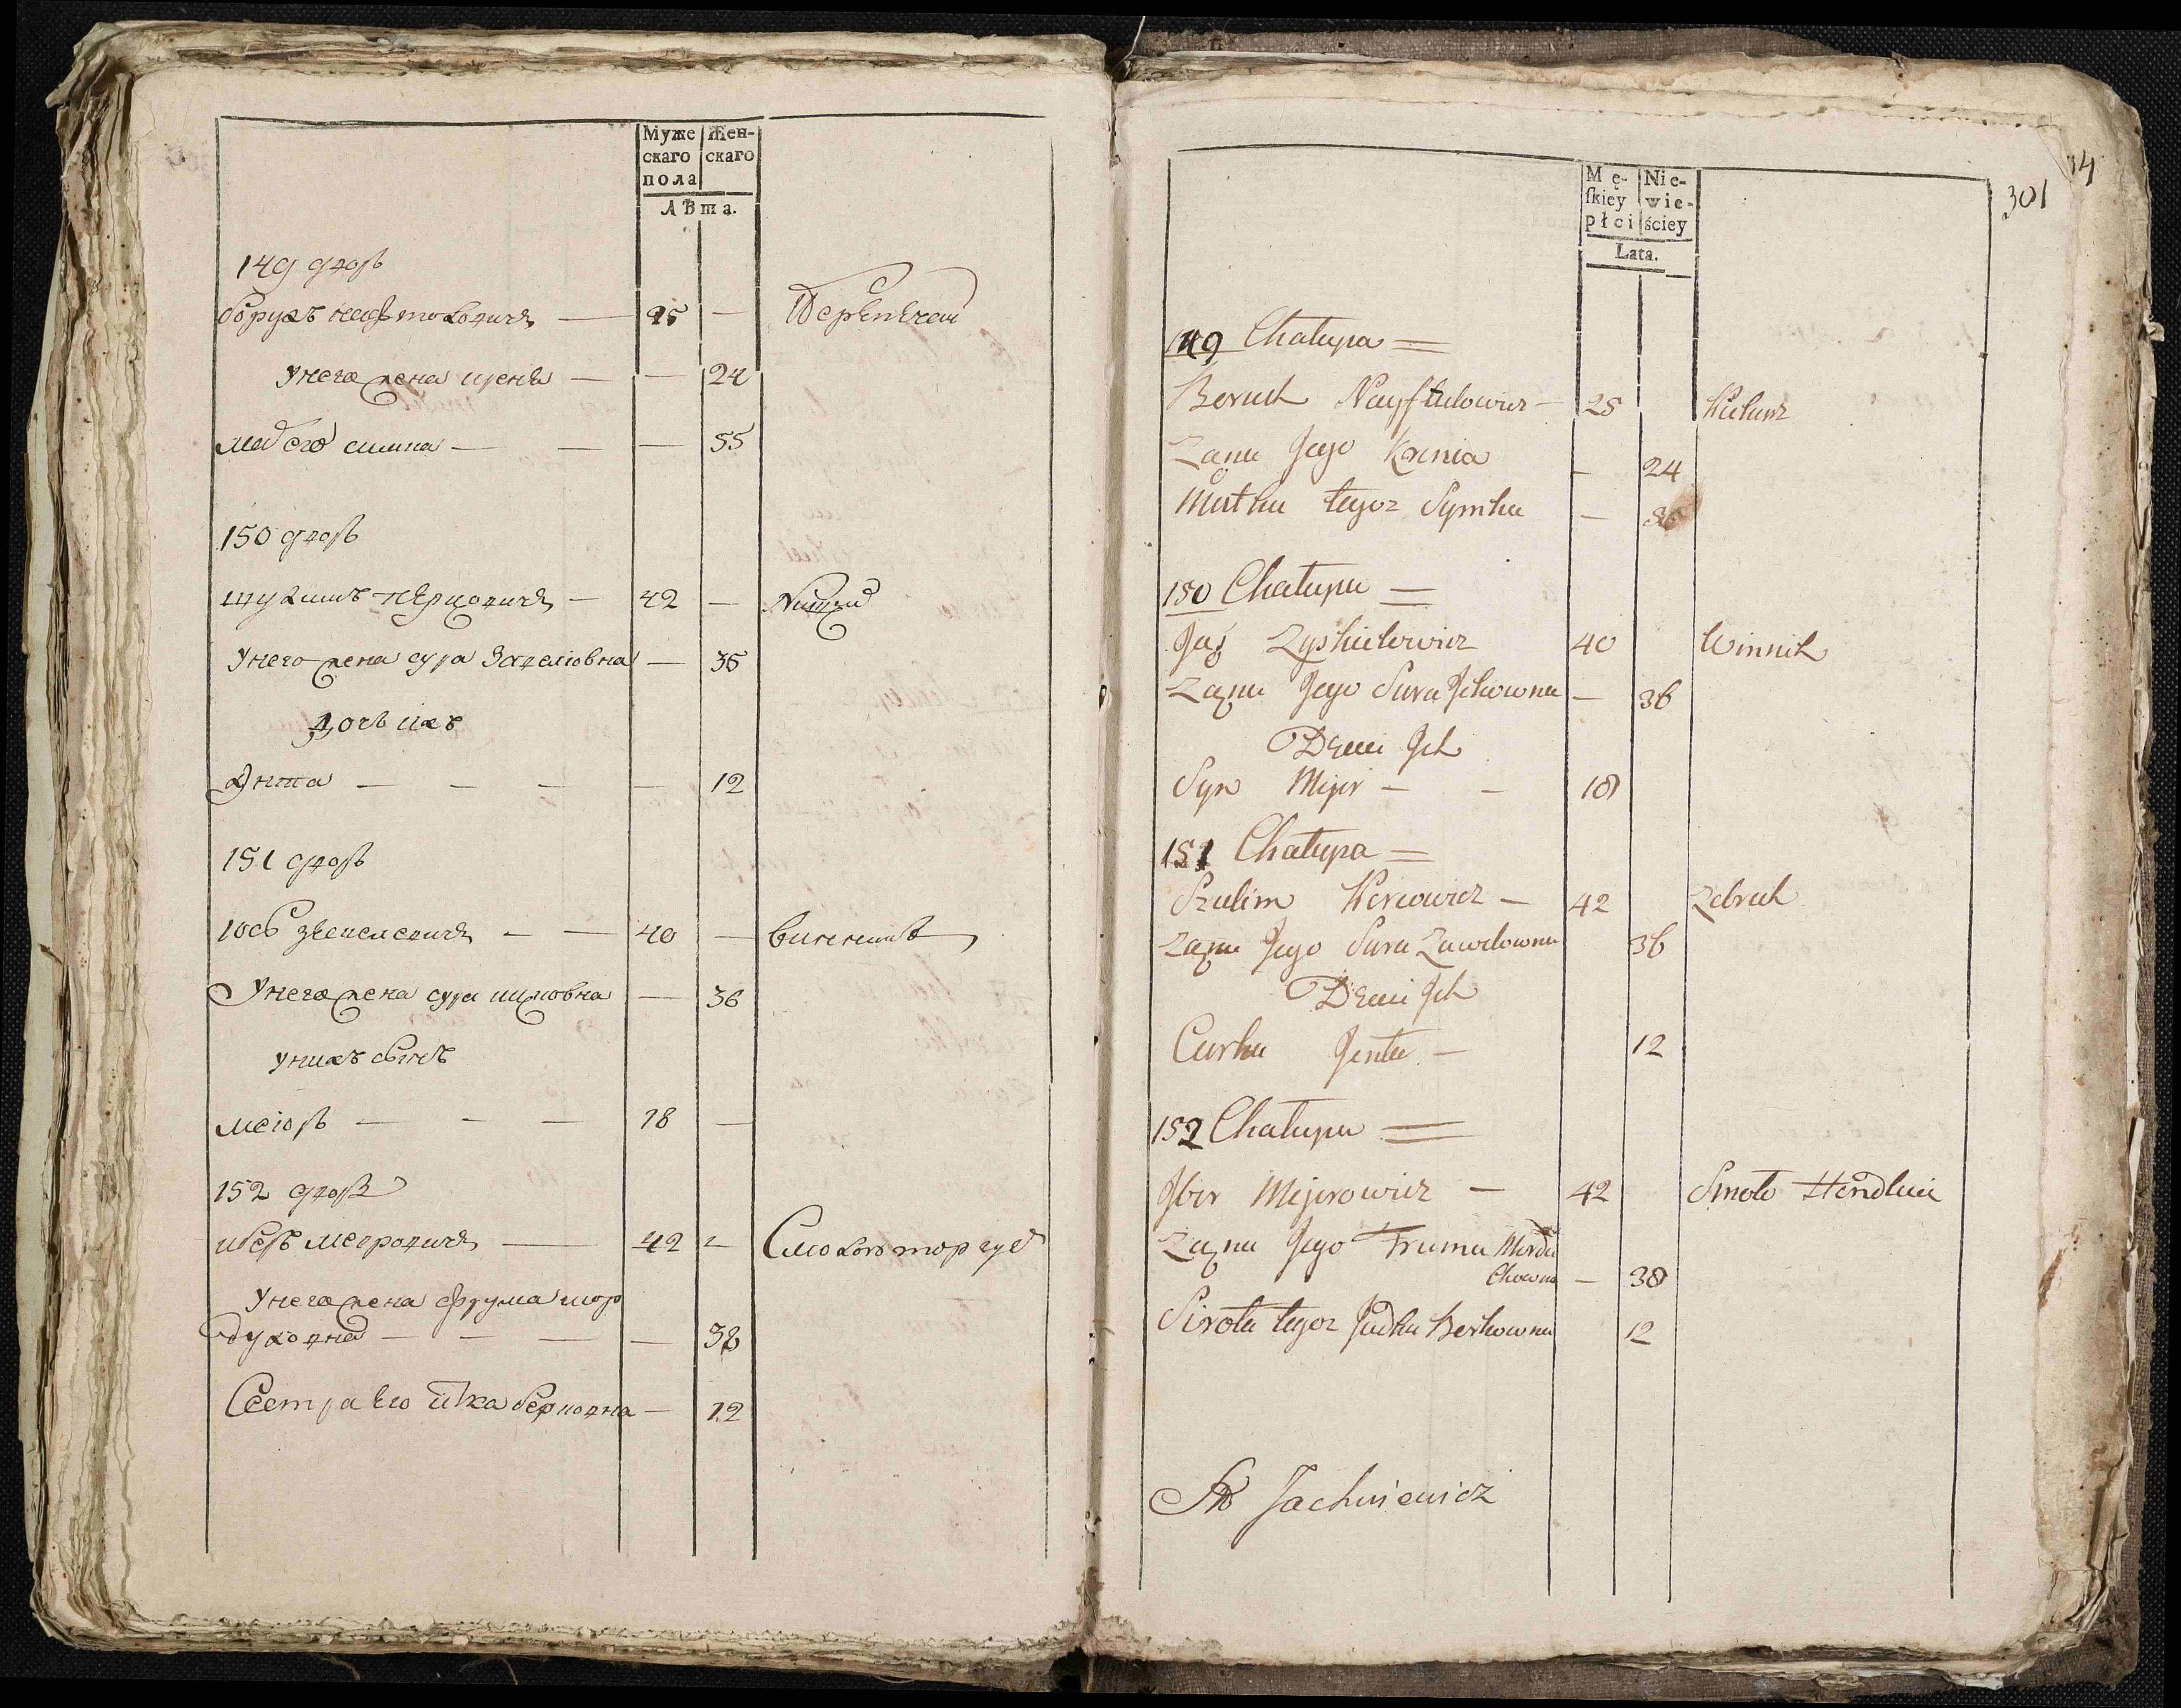 Муже Жен-
скаго скаго
пола
Лѣта.
149 дворъ
борухъ нафтоловичъ — 25 —
У него жена крень — — 24
мать его симка — — — 55
150 дворъ
шулимъ герцовичъ — 42 — Нищий
У него жена сура завелювна — 36
дочь ихъ
Энта — — — — 12
151 дворъ
Іосъ зыскелевичъ — — 40 — винникъ
У него жена сура ицковна — 36
у нихъ сынъ
меіоръ — — — 18 —
152 дворъ
иберъ мееровичъ — 42 — Смолою торгуетъ
У него жена фрума мор
духовна — — — — 38
Сестра Его итка берковна — 12
34
301
Mę- Nie-
ſkiey wie-
płci ściey
Lata.
149 Chałupa =
Boruch Nayftulowicz — 25
Żąna Jego Krenia — 24
Matka tegoż Symka —
150 Chałupa =
Joś Zyskielowicz 40 Winnik
Żąna Jego Sura Ickowna — 36
Dzieci Ich
Syn Mejer — — 18
151 Chałupa =
Szulim Hercowicz — 42 Żebrak
Żąna Jego Sura Zawelowna 36
Dzieci Ich
Curka Jenta — 12
152 Chałupa =
Iber Mejerowicz — 42 Smoło Hendluie
Żąna Jego Fruma Mordu
chowna — 38
Sirota tegoż Judka Berkowna 12
Jachniewicz